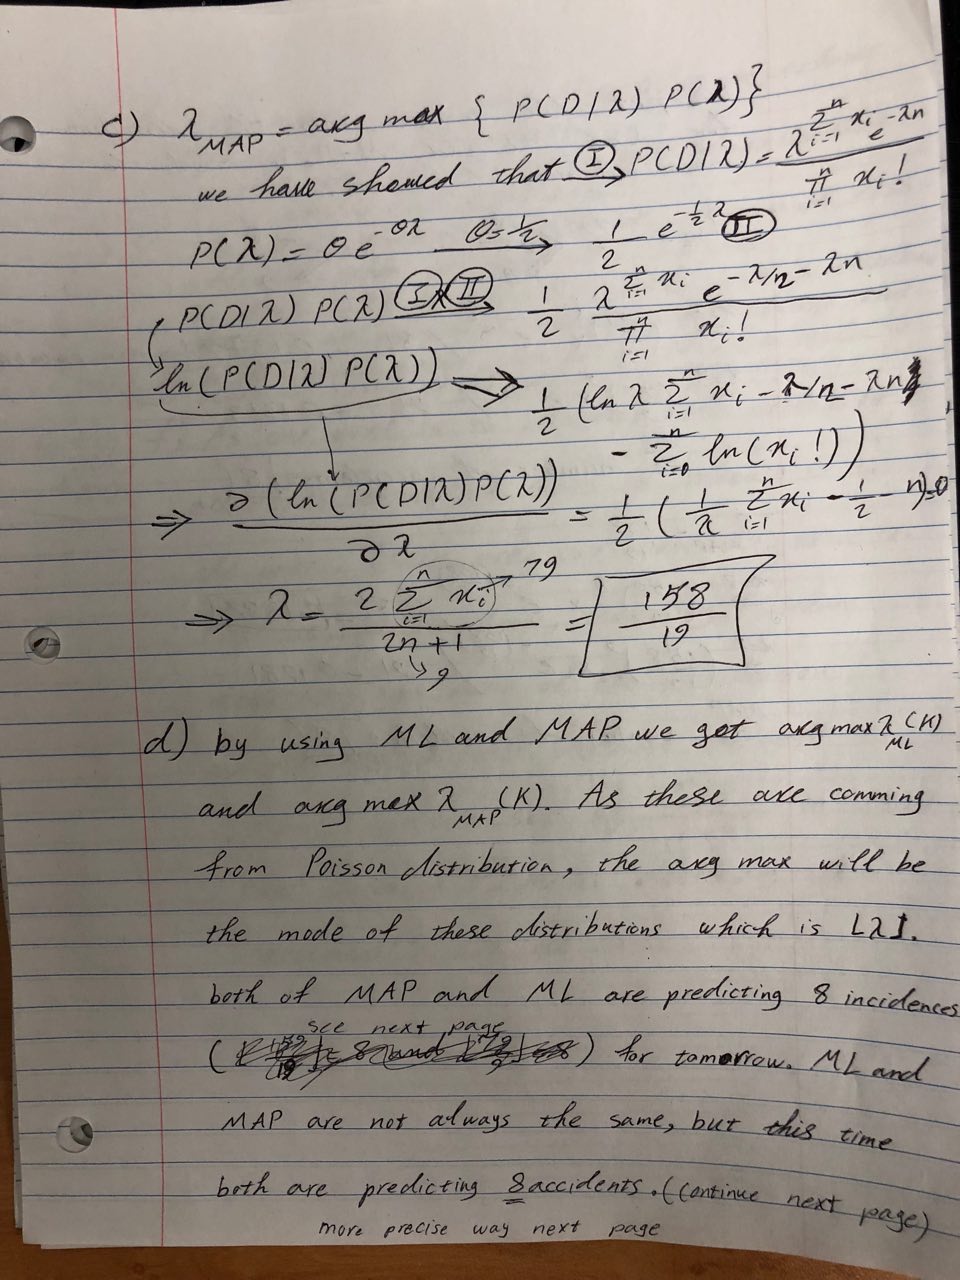 c) λ_MAP = arg max { P(D|λ) P(λ)}
we have showed that Ⓘ → P(D|λ) = λ^{Σ_{i=1}^{n} x_i} e^{-λn} / Π_{i=1}^{n} x_i!
P(λ) = θ e^{-θλ} θ=1/2 → 1/2 e^{-1/2 λ} Ⅱ
P(D|λ) P(λ) Ⅰ×Ⅱ → 1/2 λ^{Σ_{i=1}^{n} x_i} e^{-λ/2 - λn} / Π_{i=1}^{n} x_i!
ln(P(D|λ) P(λ)) ⇒ 1/2 (ln λ Σ_{i=1}^{n} x_i - λ/2 - λn
- Σ_{i=0}^{n} ln(x_i!))
⇒ ∂(ln(P(D|λ)P(λ)) / ∂λ = 1/2 (1/λ Σ_{i=1}^{n} x_i - 1/2 - n)=0
⇒ λ = 2 Σ_{i=1}^{n} x_i → 79 / 2n + 1 ↳ 9 = 158/19
d) by using ML and MAP we get arg max λ_ML (K)
and arg max λ_MAP (K). As these are comming
from Poisson distribution, the arg max will be
the mode of these distributions which is ⌊λ⌋.
both of MAP and ML are predicting 8 incidences
see next page
( ) for tomorrow. ML and
MAP are not always the same, but this time
both are predicting 8 accidents. (Continue next page)
more precise way next page